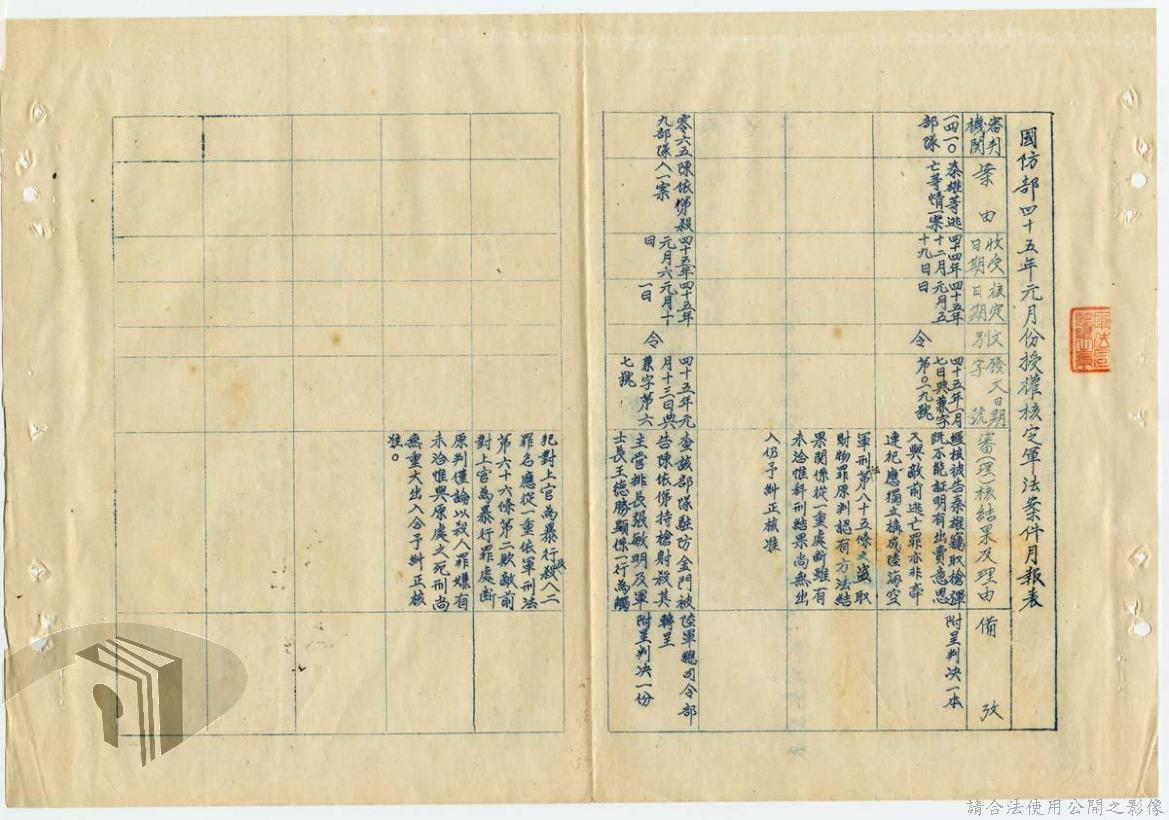 國防部四十五年元月份授權核定軍法案件月報表
審判機関
案由
收受日期
核定日期
文別
發文日期字號
審(理)核結果及理由
備攷
一四一〇部隊
秦雄等逃亡等情一案
四十四年十二月十九日
四十五年元月五日
令
四十五年一月七日典兼字第〇二九號
經核被告秦雄竊取槍彈
既不能証明有出賣意思
又與敵前逃亡罪亦非牽
連犯應獨立構成陸海空
軍刑法第八十五條之盜取
財物罪原判認有方法結
果関係從一重處断雖有
未洽惟科刑結果尚無出
入仍予糾正核准
附呈判决一本
零六五九部隊
陳依俤殺人一案
四十五年元月六日
四十五年元月十一日
令
四十五年元月十三日典兼字第六七號
查該部隊駐防金門被
告陳依俤持槍射殺其
主管排長張敏明及軍
士長王德勝顯係一行為觸
犯對上官為暴行及殺人二
罪名應從一重依軍刑法
第六十六條第二欵敵前
對上官為暴行罪處断
原判僅論以殺人罪嫌有
未洽惟與原處之死刑尚
無重大出入合予糾正核
准。
陸軍總司令部
轉呈
附呈判决一份
請合法使用公開之影像